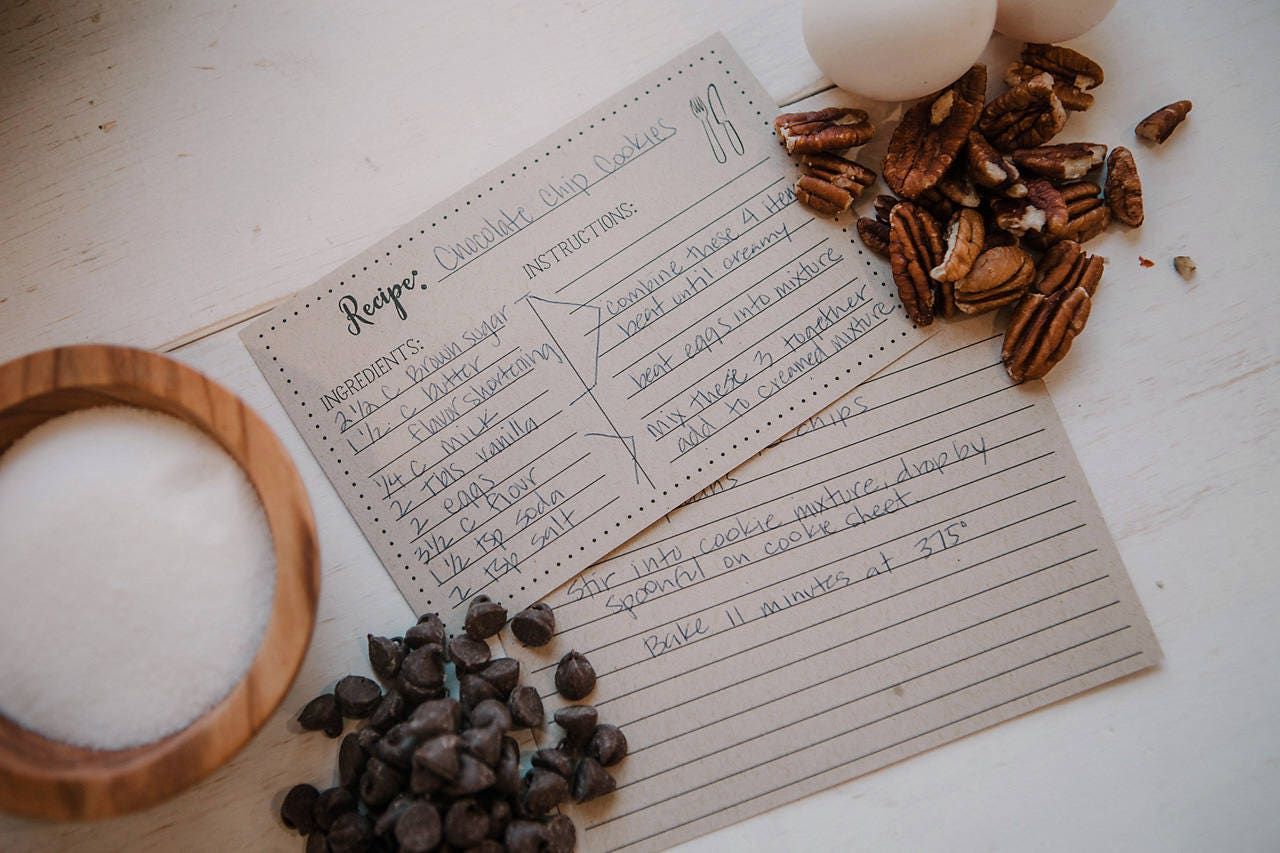 Recipe: Chocolate Chip Cookies
INGREDIENTS:
2 1/2 C Brown sugar
1 1/2 C butter
flavor shortening
1/4 C milk
2 Tbls vanilla
2 eggs
3 1/2 C flour
1 1/2 tsp soda
2 tsp salt
INSTRUCTIONS:
combine these 4 item
beat until creamy
beat eggs into mixture
mix these 3 together
add to creamed mixture
chips
Stir into cookie mixture, drop by
spoonful on cookie sheet
Bake 11 minutes at 375°